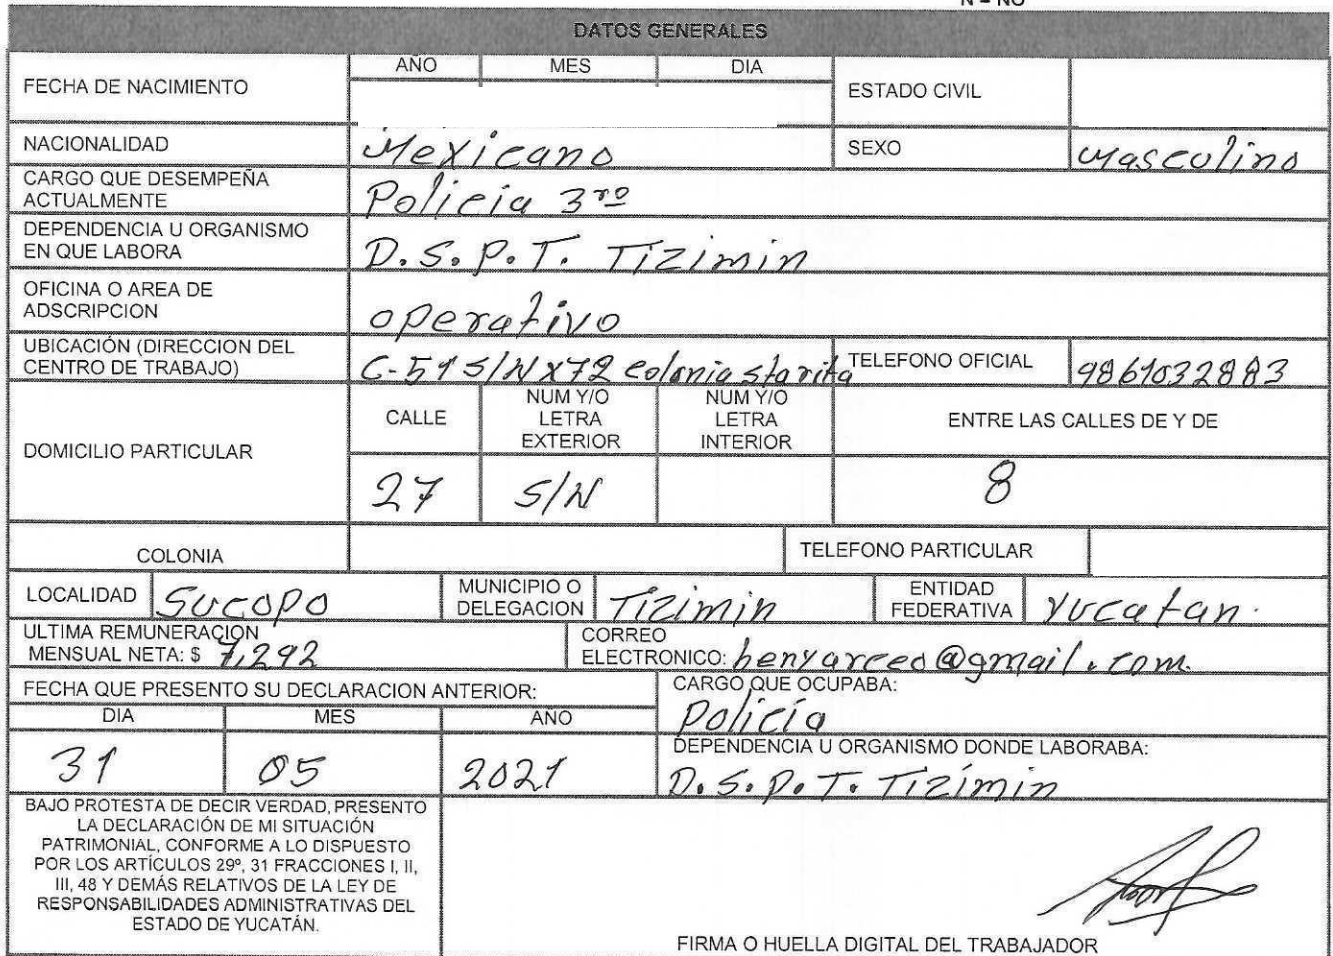 N = NO
DATOS GENERALES
FECHA DE NACIMIENTO
AÑO MES DIA
ESTADO CIVIL
NACIONALIDAD Mexicano SEXO Masculino
CARGO QUE DESEMPEÑA
ACTUALMENTE
Policía 3ro
DEPENDENCIA U ORGANISMO
EN QUE LABORA
D.S.P.T. Tizimin
OFICINA O AREA DE
ADSCRIPCION
operativo
UBICACIÓN (DIRECCION DEL
CENTRO DE TRABAJO)
C-51 S/N x72 colonia starita
TELEFONO OFICIAL 9861032883
DOMICILIO PARTICULAR
CALLE
NUM Y/O
LETRA
EXTERIOR
NUM Y/O
LETRA
INTERIOR
ENTRE LAS CALLES DE Y DE
27 S/N 8
COLONIA TELEFONO PARTICULAR
LOCALIDAD Sucopo
MUNICIPIO O
DELEGACION
Tizimin
ENTIDAD
FEDERATIVA
Yucatan.
ULTIMA REMUNERACION
MENSUAL NETA: $ 7,292
CORREO
ELECTRONICO: henyarceo@gmail.com.
FECHA QUE PRESENTO SU DECLARACION ANTERIOR:
DIA MES AÑO
31 05 2021
CARGO QUE OCUPABA:
Policía
DEPENDENCIA U ORGANISMO DONDE LABORABA:
D.S.P.T. Tizímin
BAJO PROTESTA DE DECIR VERDAD, PRESENTO
LA DECLARACIÓN DE MI SITUACIÓN
PATRIMONIAL, CONFORME A LO DISPUESTO
POR LOS ARTÍCULOS 29º, 31 FRACCIONES I, II,
III, 48 Y DEMÁS RELATIVOS DE LA LEY DE
RESPONSABILIDADES ADMINISTRATIVAS DEL
ESTADO DE YUCATÁN.
FIRMA O HUELLA DIGITAL DEL TRABAJADOR